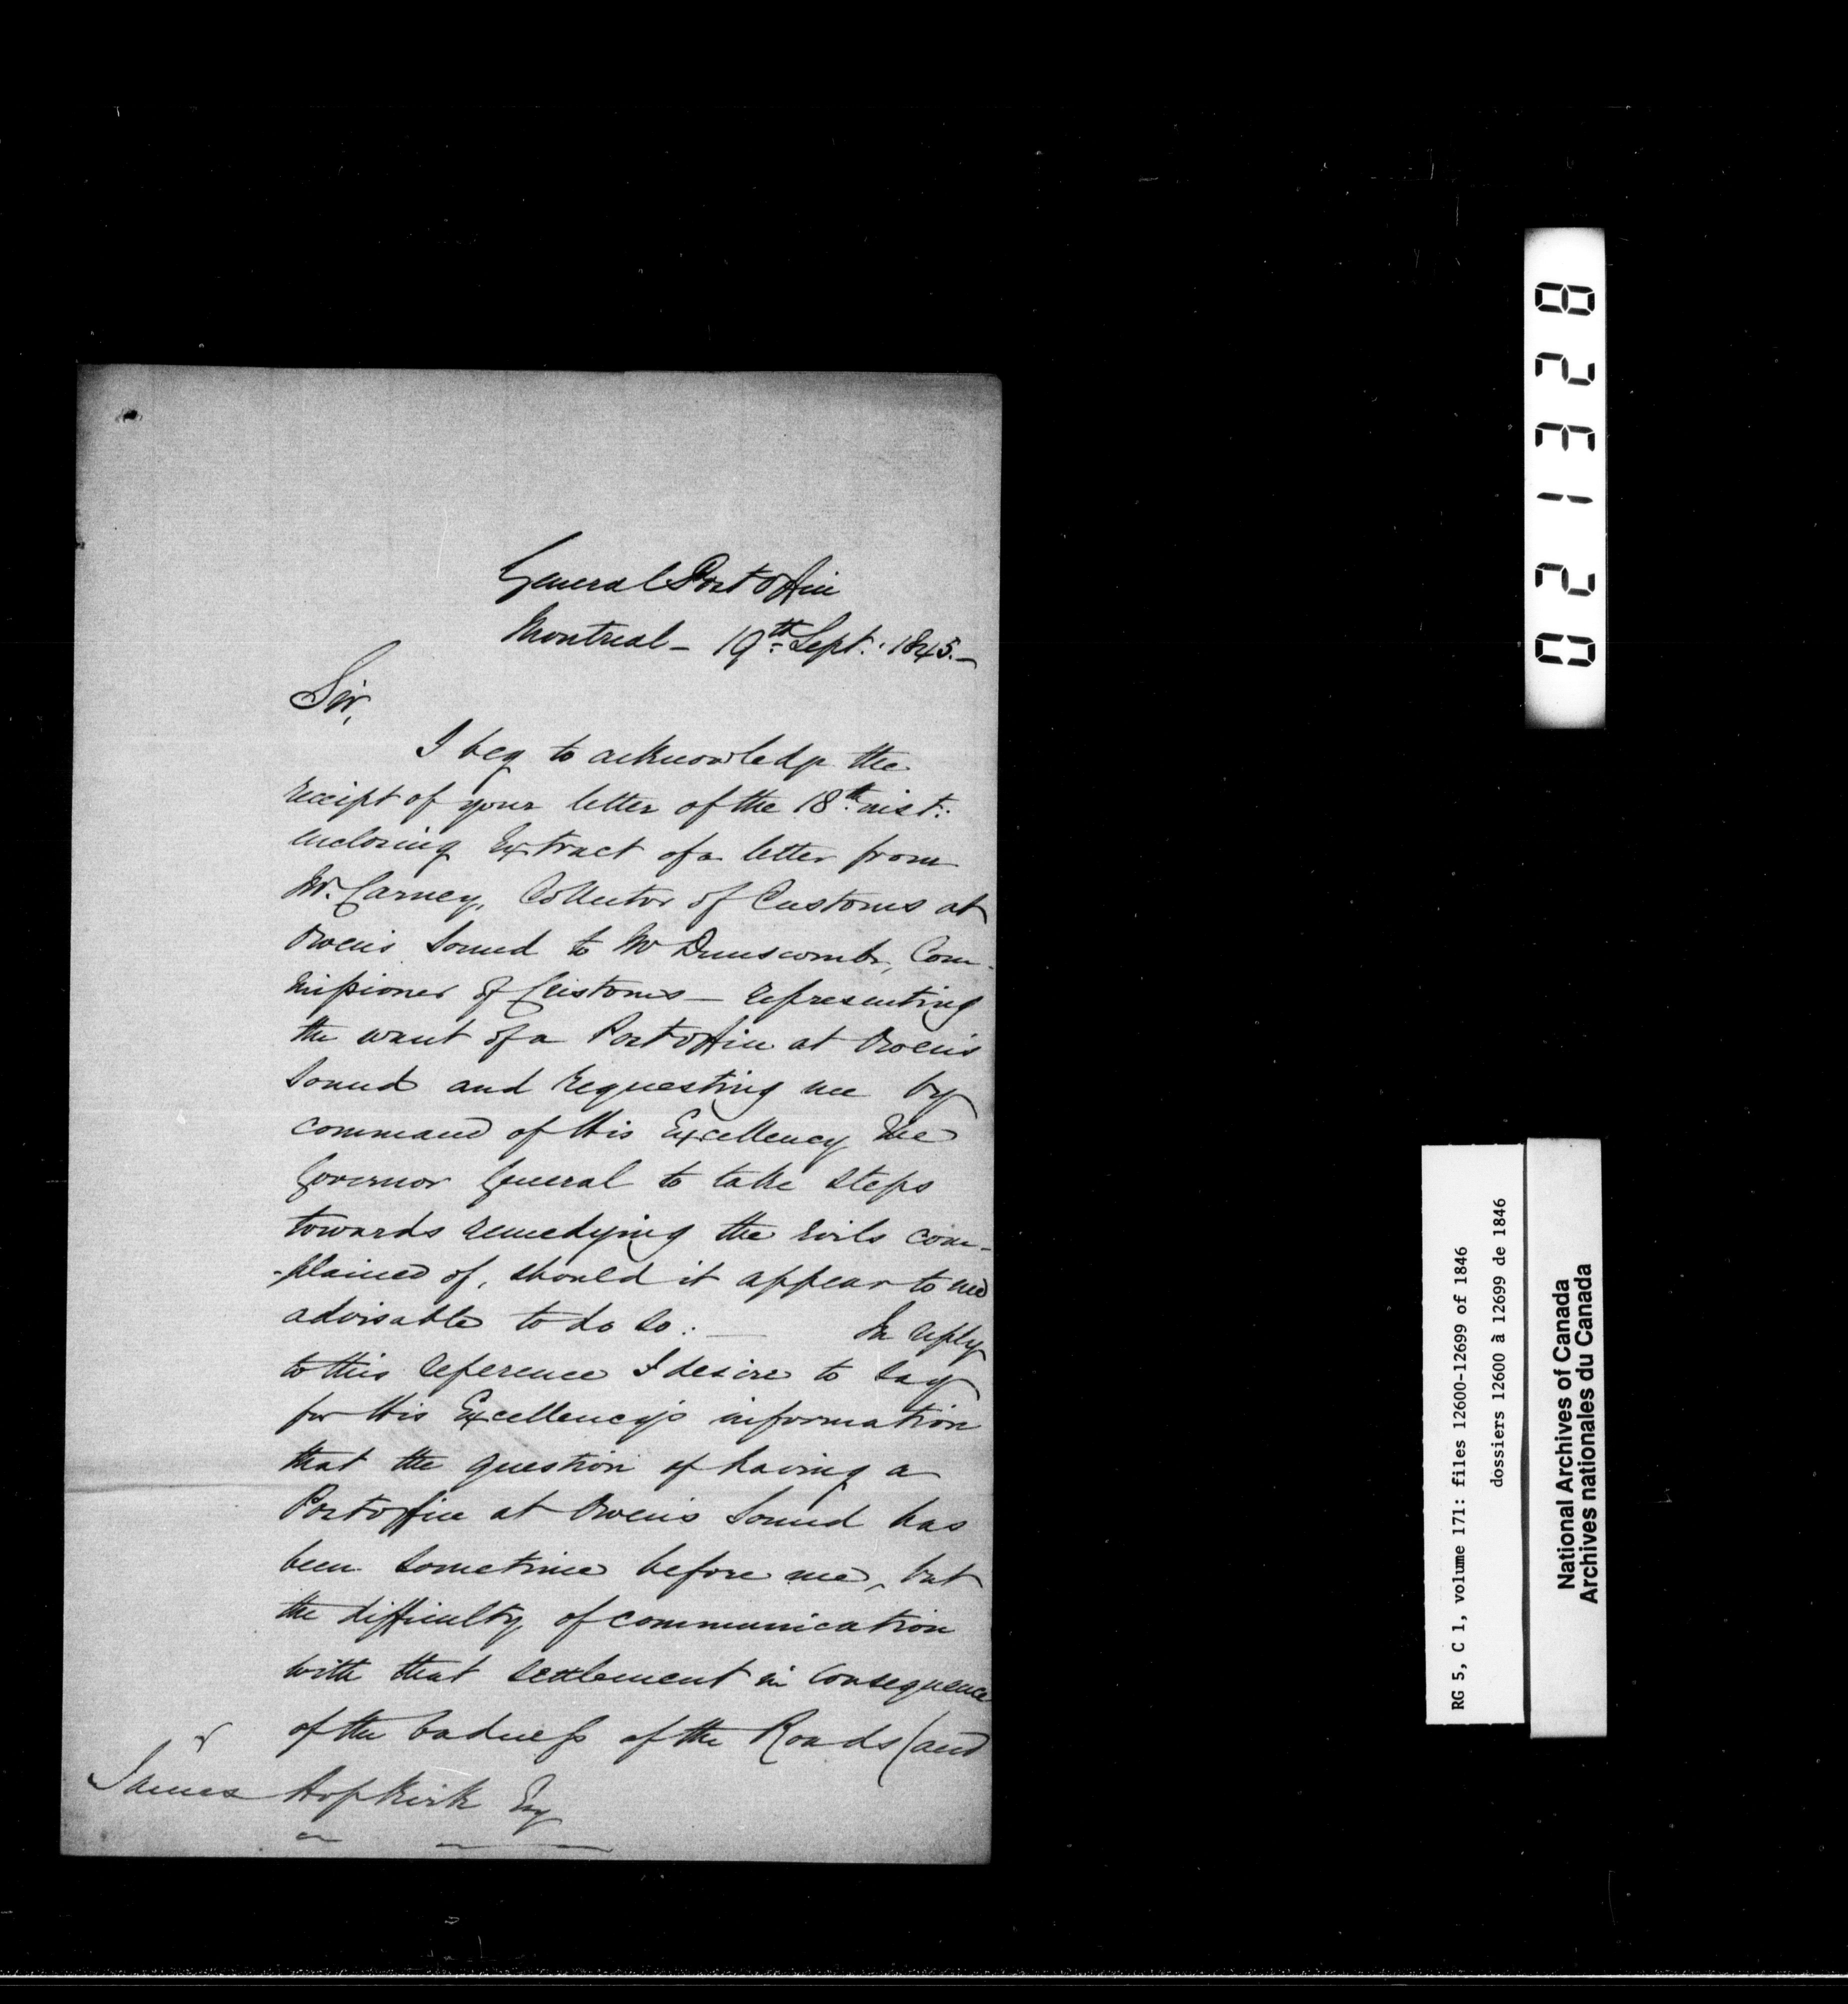 General Post Office
Montreal - 19th Sept: 1845. -
Sir,
I beg to acknowledge the
receipt of your letter of the 18th inst:
inclosing Extract of a letter from
Mr. Carney, Collector of Customs at
Owen's Sound to Mr Dunscomb, Com-
missioner of Customs - representing
the want of a Post Office at Owen's
Sound and requesting me by
command of His Excellency the
Governor General to take steps
towards remedying the evils com-
-plained of, should it appear to me
advisable to do so: — In reply
to this reference I desire to say
for His Excellency's information
that the question of having a
Post Office at Owen's Sound has
been sometime before me, but
the difficulty of communication
with that settlement in consequence
of the badness of the Roads (and
James Hopkirk Esq
021328
RG 5, C 1, volume 171: files 12600-12699 of 1846
dossiers 12600 à 12699 de 1846
National Archives of Canada
Archives nationales du Canada